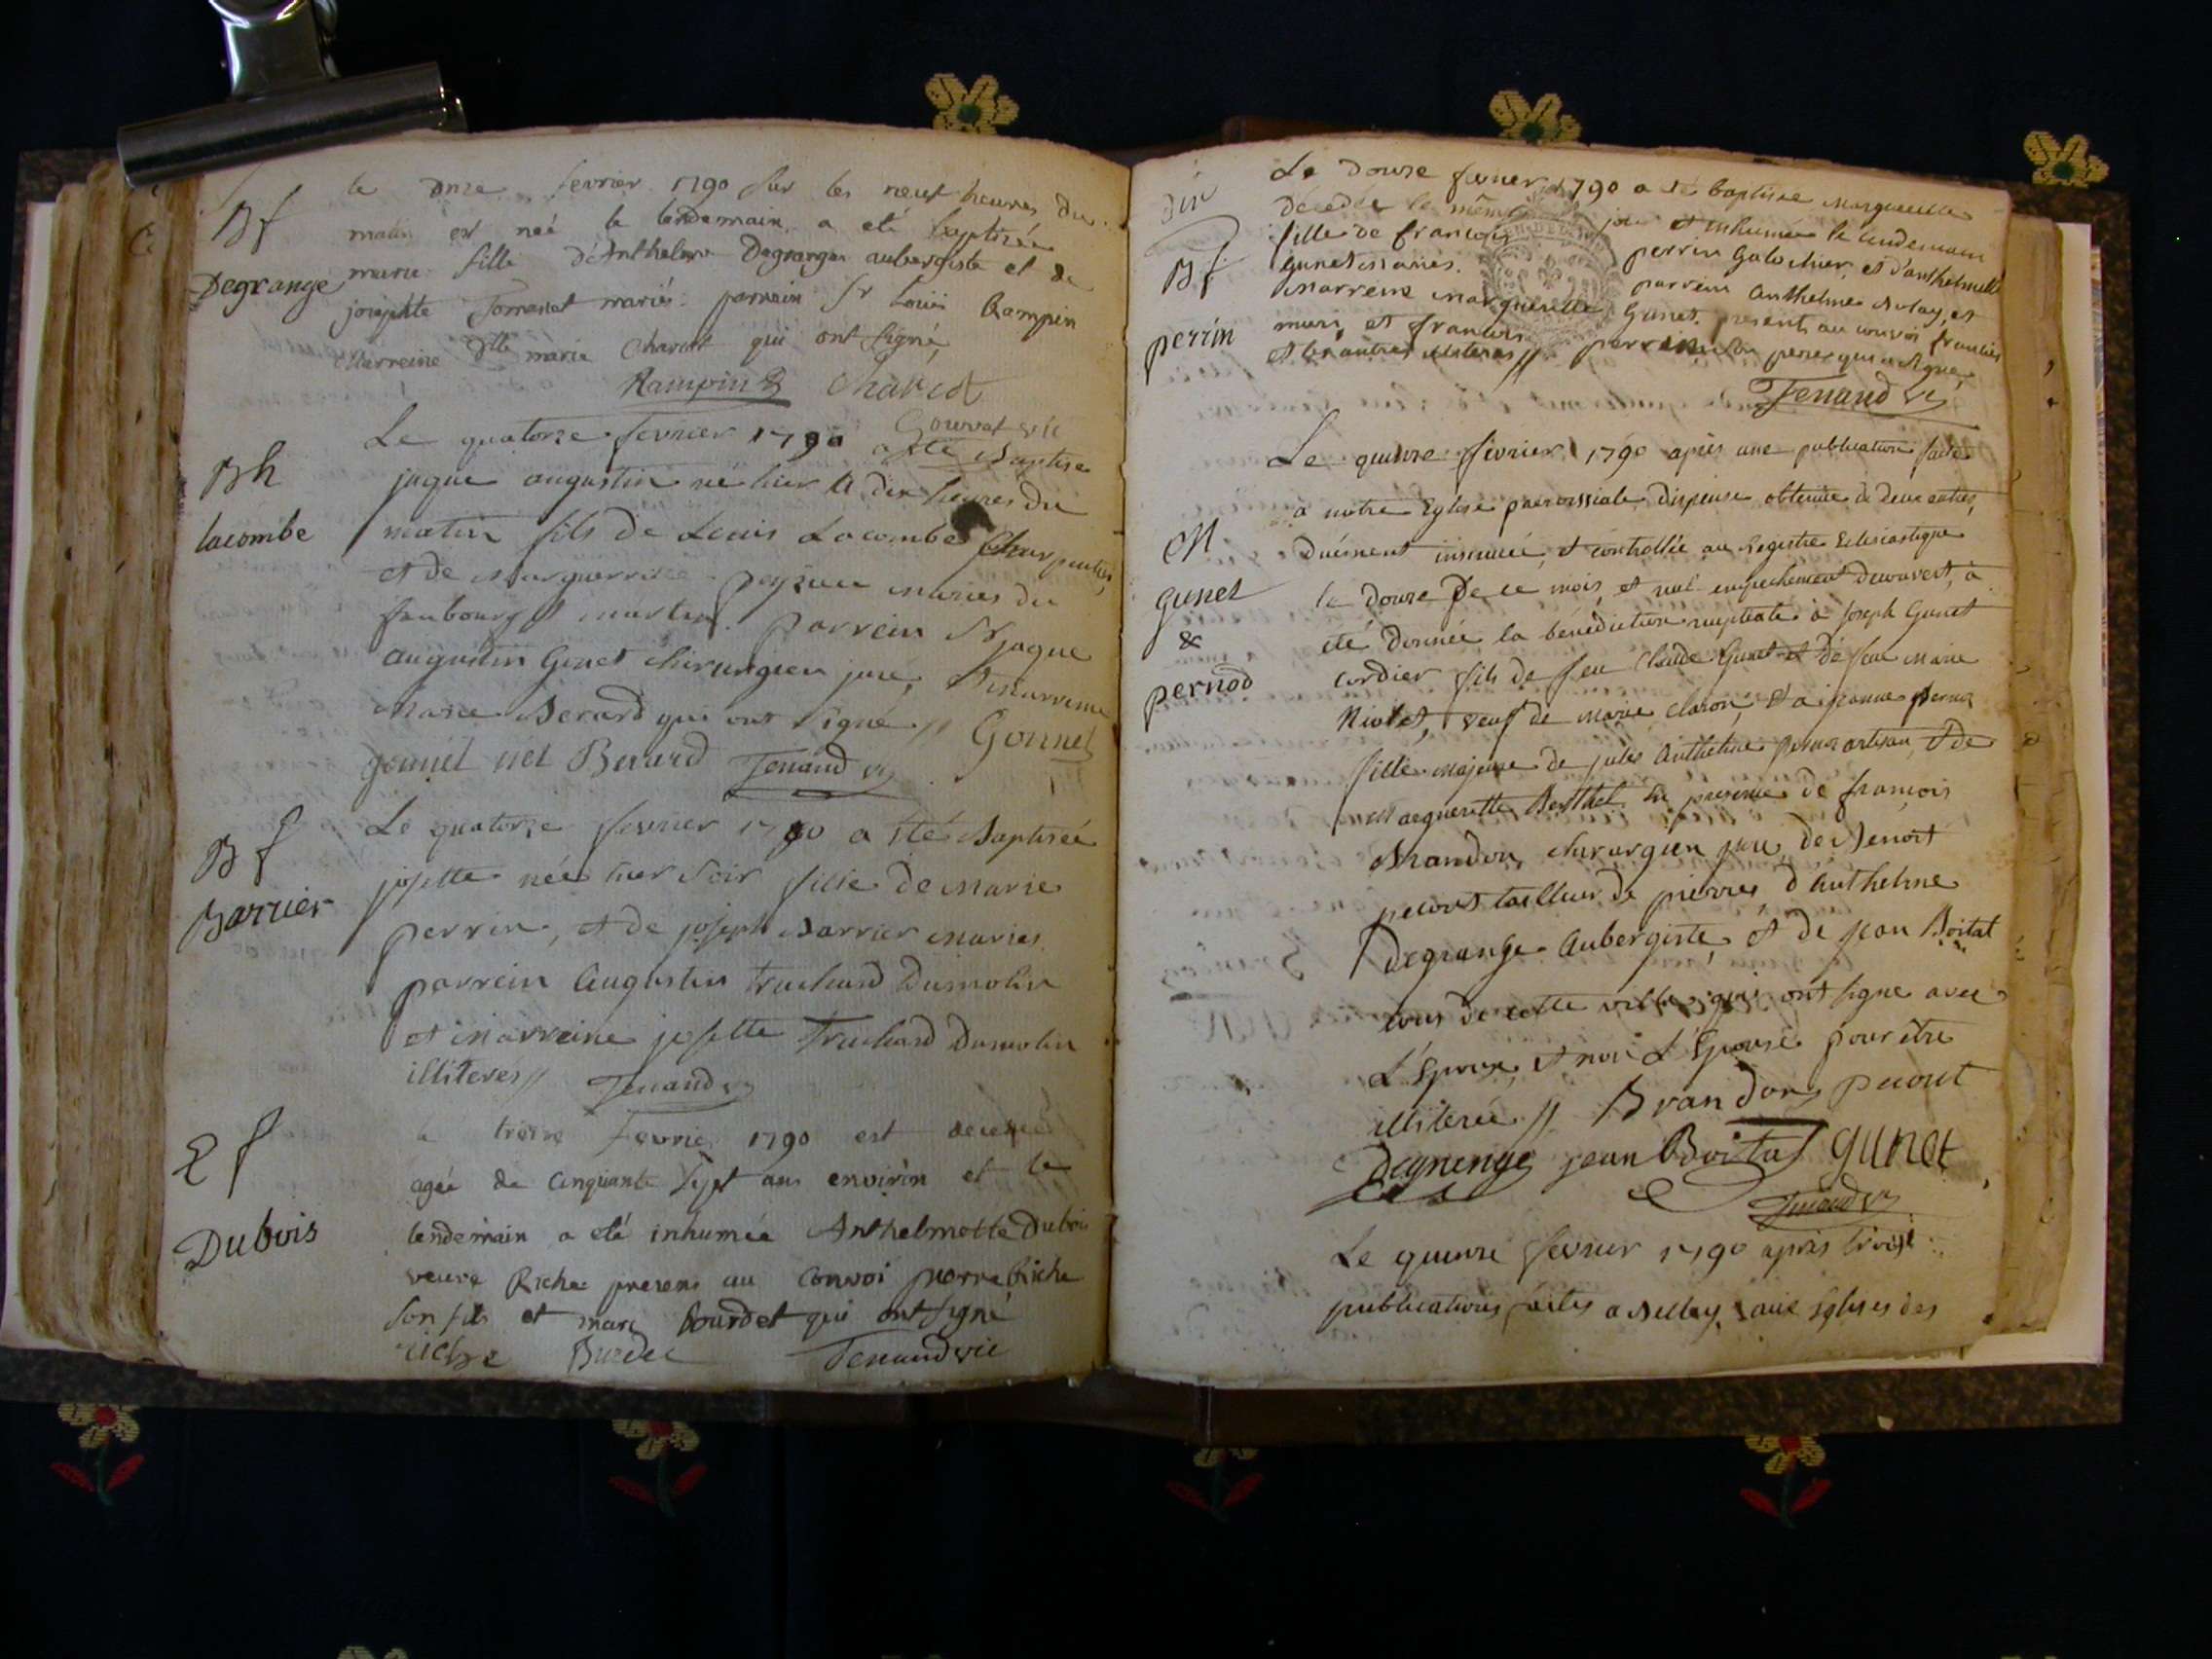 Bf
Degrange
le onze fevrier 1790 sur les neuf heures du
matin est neé le lendemain a eté baptisée
marie fille d'Anthelme Degrange aubergiste et de
josephte mariés parrain Sr Louis Rampin
Marreine Dlle marie Charcot qui ont signé
Rampin Charcot
Gourvat vic
Bh
lacombe
Le quatorze fevrier 1790 a été Baptise
jaque augustin né hier a dix heures du
matin fils de Louis Lacombe Charpentier
et de Marguerritte maries du
faubourg st martin. parrein Sr jaque
augustin Genet chirurgien juré, et marreine
Marie Berard qui ont signé // Gonnet
Berard Tenand vic
Bf
Barrier
Le quatorze fevrier 1790 a été Baptisée
josette née hier soir fille de Marie
perrin, et de joseph Barrier maries
parrein Augustin truchard Dumolin
et marreine josette Truchard Dumolin
illiteres // Tenand vic
Ef
Dubois
le treize fevrier 1790 est decedée
agée de cinquante sept ans environ et le
lendemain a eté inhumée Anthelmette Dubois
veuve Riche presens au convoi pierre Riche
son fils et marc bourdet qui ont signé
riche Burdet Tenand vic
Bf
perrin
Le douze fevrier 1790 a été baptisée Marguerite
decedée le même jour et inhumée le lendemain
fille de francois perrin Galochier, et d'anthelmette
Gunet mariés. parrein Anthelme Molay, et
Marreine Marguerite Gunet. presents au convoi francois
et francois perrin son pere qui a signé,
et les autres illiteres //
Tenand vic
M
gunet
&
pernod
Le quinze fevrier 1790 après une publication faite
a notre Eglise paroissiale dispense obtenue de deux autres,
duëment insinuée, et controllée au Registre Eclesiastique
le douze de ce mois, et nul empechement decouvert, à
été donnée la bénédiction nuptiale à joseph Gunet
cordier fils de feu Claude Gunet et de feue Marie
Niolet, veuf de Marie Claron, et a jeanne Pernoz
fille Majeure de jules Anthelme Pernoz artisan, et de
Marguerite Berthet En presence de francois
Brandon, chirurgien juré, de Benoit
pecout tailleur de pierres, d'Anthelme
Degrange Aubergiste, et de jean Boitat
tous de cette ville, qui ont signe avec
L'Epoux, et non L'Epouse pour être
illiterée // Brandon pecout
Degrenge jean Boitat gunet
Tenand vic
Le quinze fevrier 1790 après trois
publications faites a Belley, aux Eglises des